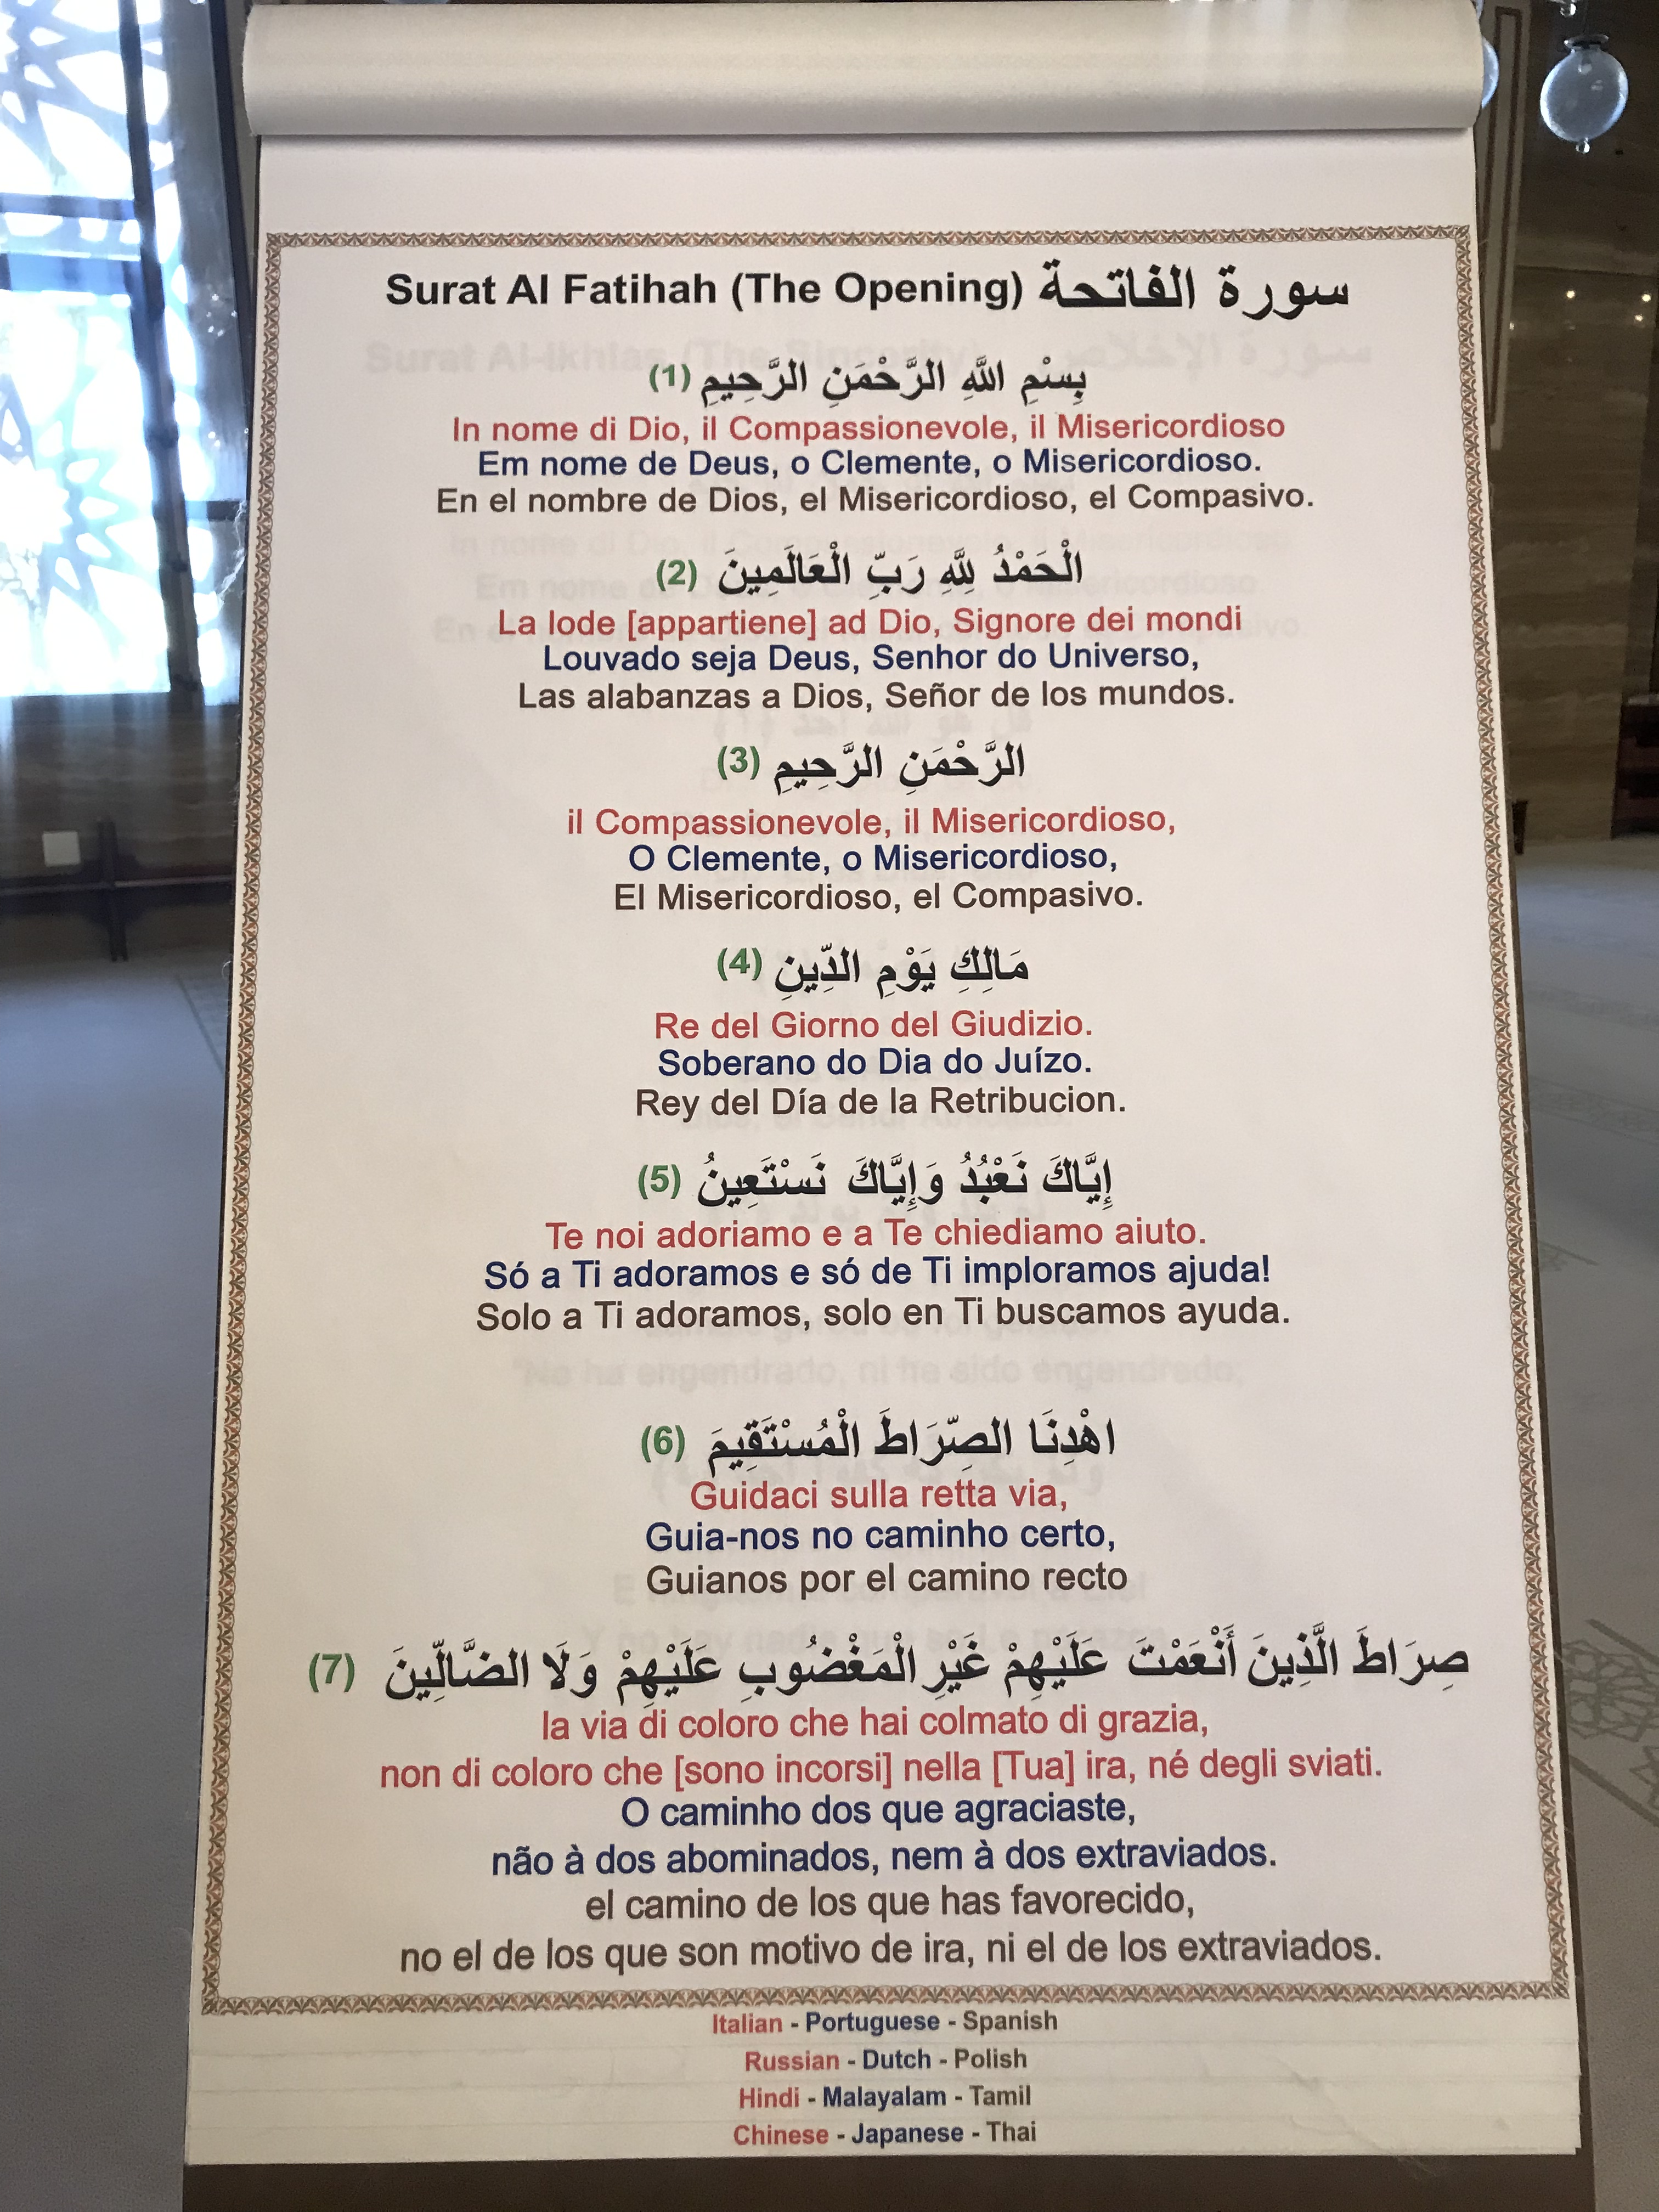 Surat Al Fatihah (The Opening) سورة الفاتحة
بِسْمِ اللَّهِ الرَّحْمَنِ الرَّحِيمِ (1)
In nome di Dio, il Compassionevole, il Misericordioso
Em nome de Deus, o Clemente, o Misericordioso.
En el nombre de Dios, el Misericordioso, el Compasivo.
الْحَمْدُ لِلَّهِ رَبِّ الْعَالَمِينَ (2)
La lode [appartiene] ad Dio, Signore dei mondi
Louvado seja Deus, Senhor do Universo,
Las alabanzas a Dios, Señor de los mundos.
الرَّحْمَنِ الرَّحِيمِ (3)
il Compassionevole, il Misericordioso,
O Clemente, o Misericordioso,
El Misericordioso, el Compasivo.
مَالِكِ يَوْمِ الدِّينِ (4)
Re del Giorno del Giudizio.
Soberano do Dia do Juízo.
Rey del Día de la Retribucion.
إِيَّاكَ نَعْبُدُ وَإِيَّاكَ نَسْتَعِينُ (5)
Te noi adoriamo e a Te chiediamo aiuto.
Só a Ti adoramos e só de Ti imploramos ajuda!
Solo a Ti adoramos, solo en Ti buscamos ayuda.
اهْدِنَا الصِّرَاطَ الْمُسْتَقِيمَ (6)
Guidaci sulla retta via,
Guia-nos no caminho certo,
Guianos por el camino recto
صِرَاطَ الَّذِينَ أَنْعَمْتَ عَلَيْهِمْ غَيْرِ الْمَغْضُوبِ عَلَيْهِمْ وَلَا الضَّالِّينَ (7)
la via di coloro che hai colmato di grazia,
non di coloro che [sono incorsi] nella [Tua] ira, né degli sviati.
O caminho dos que agraciaste,
não à dos abominados, nem à dos extraviados.
el camino de los que has favorecido,
no el de los que son motivo de ira, ni el de los extraviados.
Italian - Portuguese - Spanish
Russian - Dutch - Polish
Hindi - Malayalam - Tamil
Chinese - Japanese - Thai